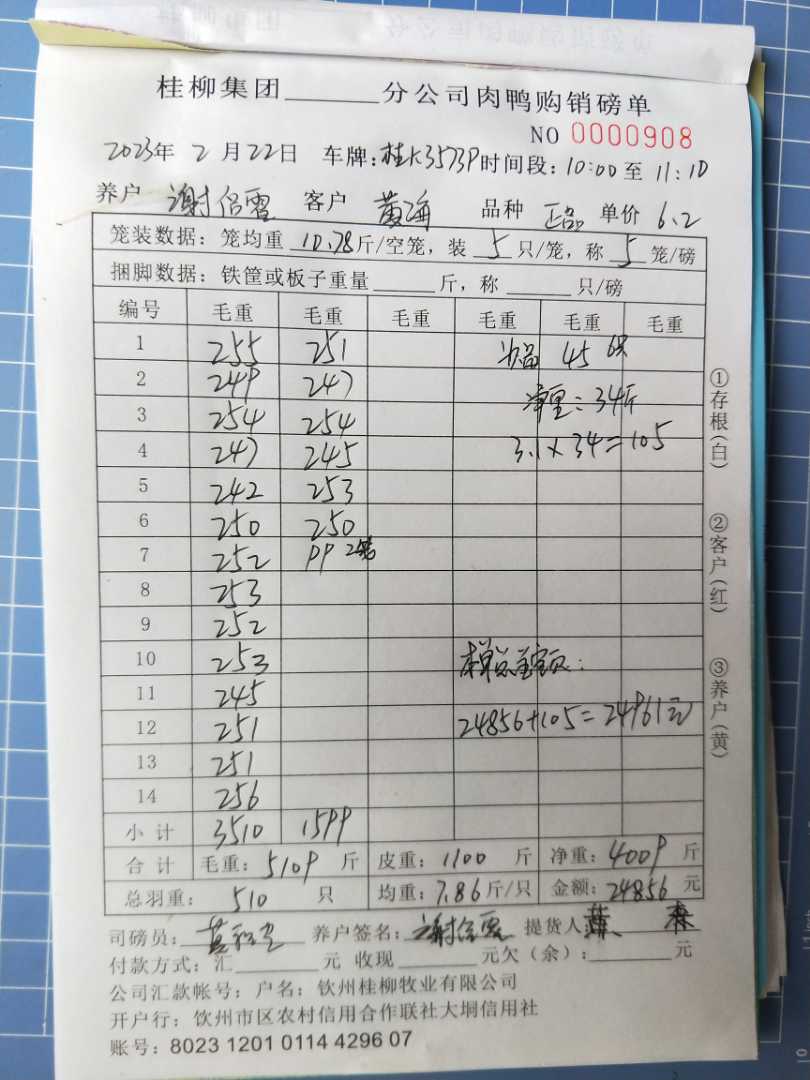 桂柳集团______分公司肉鸭购销磅单
NO 0000908
2023年 2月22日 车牌:桂K3573P时间段:10:00至11:10
养户 谢 客户 黄海 品种 正品 单价 6.2
笼装数据:笼均重 10.78斤/空笼,装 5 只/笼,称 5 笼/磅
捆脚数据:铁筐或板子重量______斤,称______只/磅
编号 毛重 毛重 毛重 毛重 毛重 毛重
1 255 251 次品 45 6只
2 249 247 净重:34斤
3 254 254
4 247 245 3.1×34=105
5 242 253
6 250 250
7 252 99 2笼
8 253
9 252
10 253 本单总金额:
11 245
12 251 24856+105=24961元
13 251
14 256
小计 3510 1599
合计 毛重:5109斤 皮重:1100斤 净重:4009斤
总羽重:510只 均重:7.86斤/只 金额:24856元
司磅员: 养户签名:谢 提货人:黄
付款方式:汇______元 收现______元欠(余):______元
公司汇款帐号:户名:钦州桂柳牧业有限公司
开户行:饮州市区农村信用合作联社大垌信用社
账号:8023 1201 0114 4296 07
①存根(白)
②客户(红)
③养户(黄)